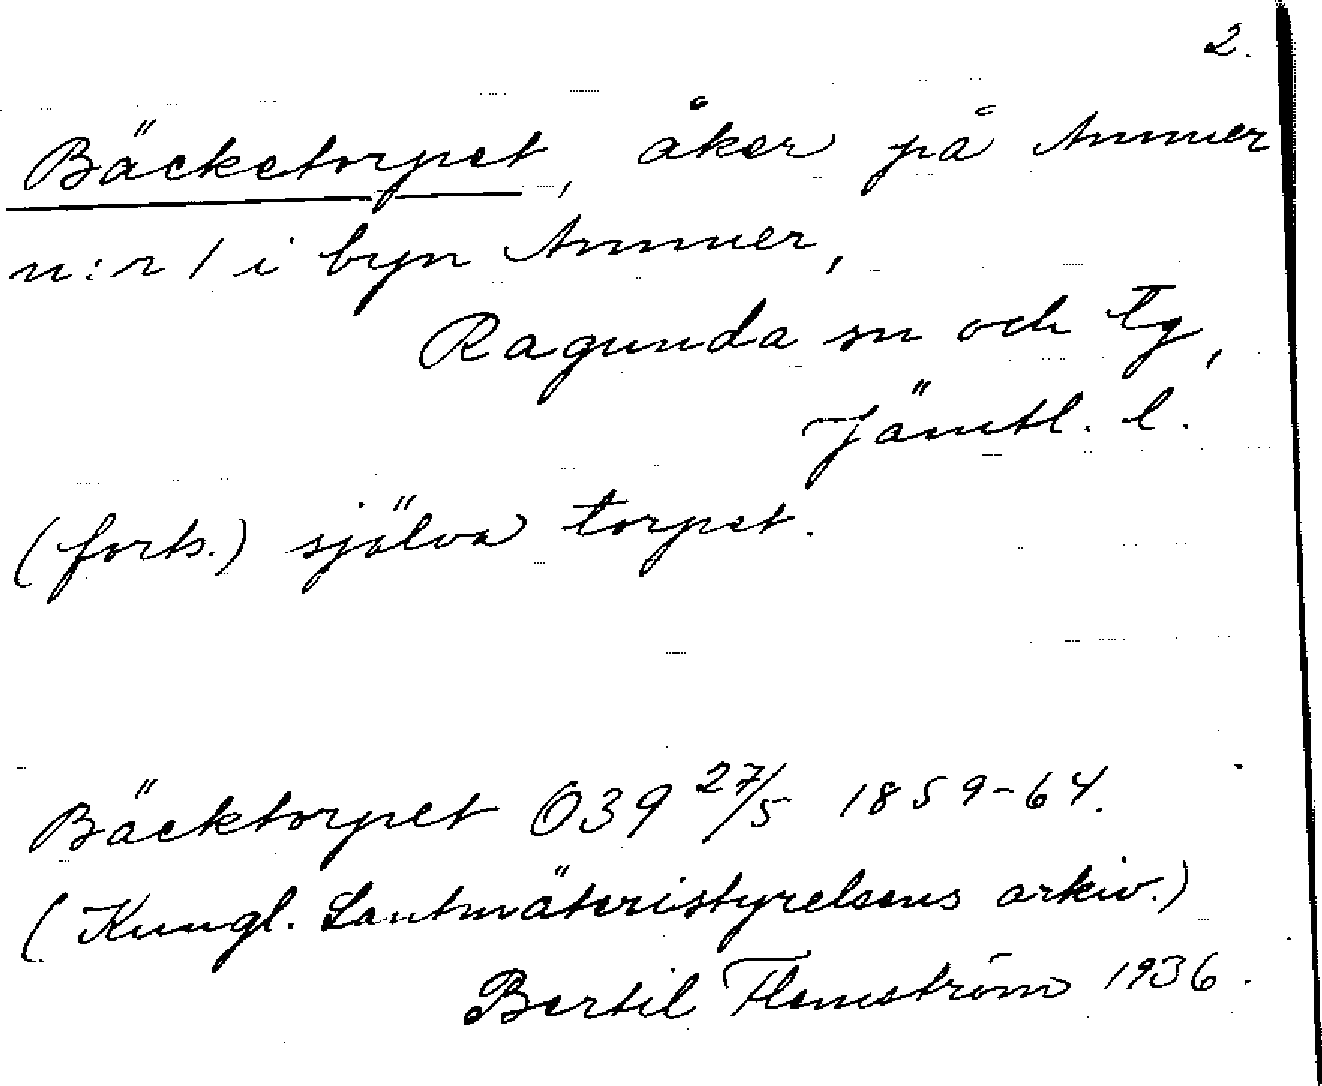 2.
Bäcketorpet, åker på Ammer
n:r 1 i byn Ammer,
Ragunda sn och tg,
Jämtl. l.
(forts.) själva torpet.
Bäcktorpet O39 27/5 1859-64.
(Kungl. Lantmäteristyrelsens arkiv.)
Bertil Flemström 1936.